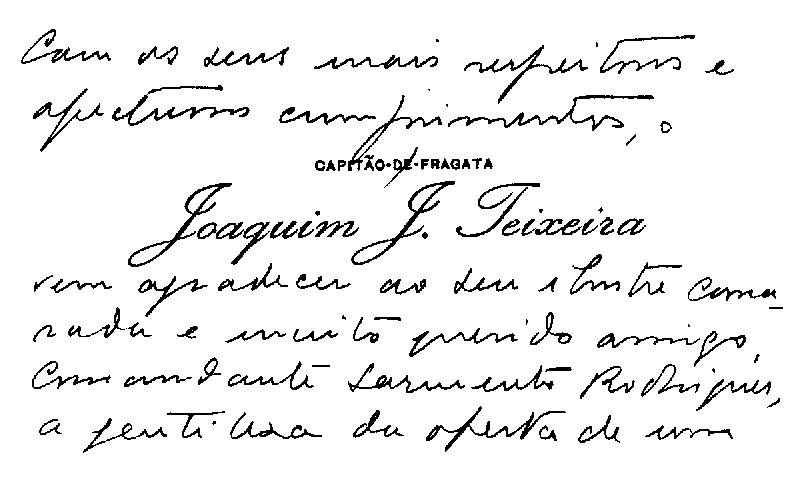 Com os seus mais respeitosos e
afectuosos cumprimentos, o
CAPITÃO-DE-FRAGATA
Joaquim J. Teixeira
vem agradecer ao seu ilustre cama-
rada e muito querido amigo,
Comandante Sarmento Rodrigues,
a gentileza da oferta de um